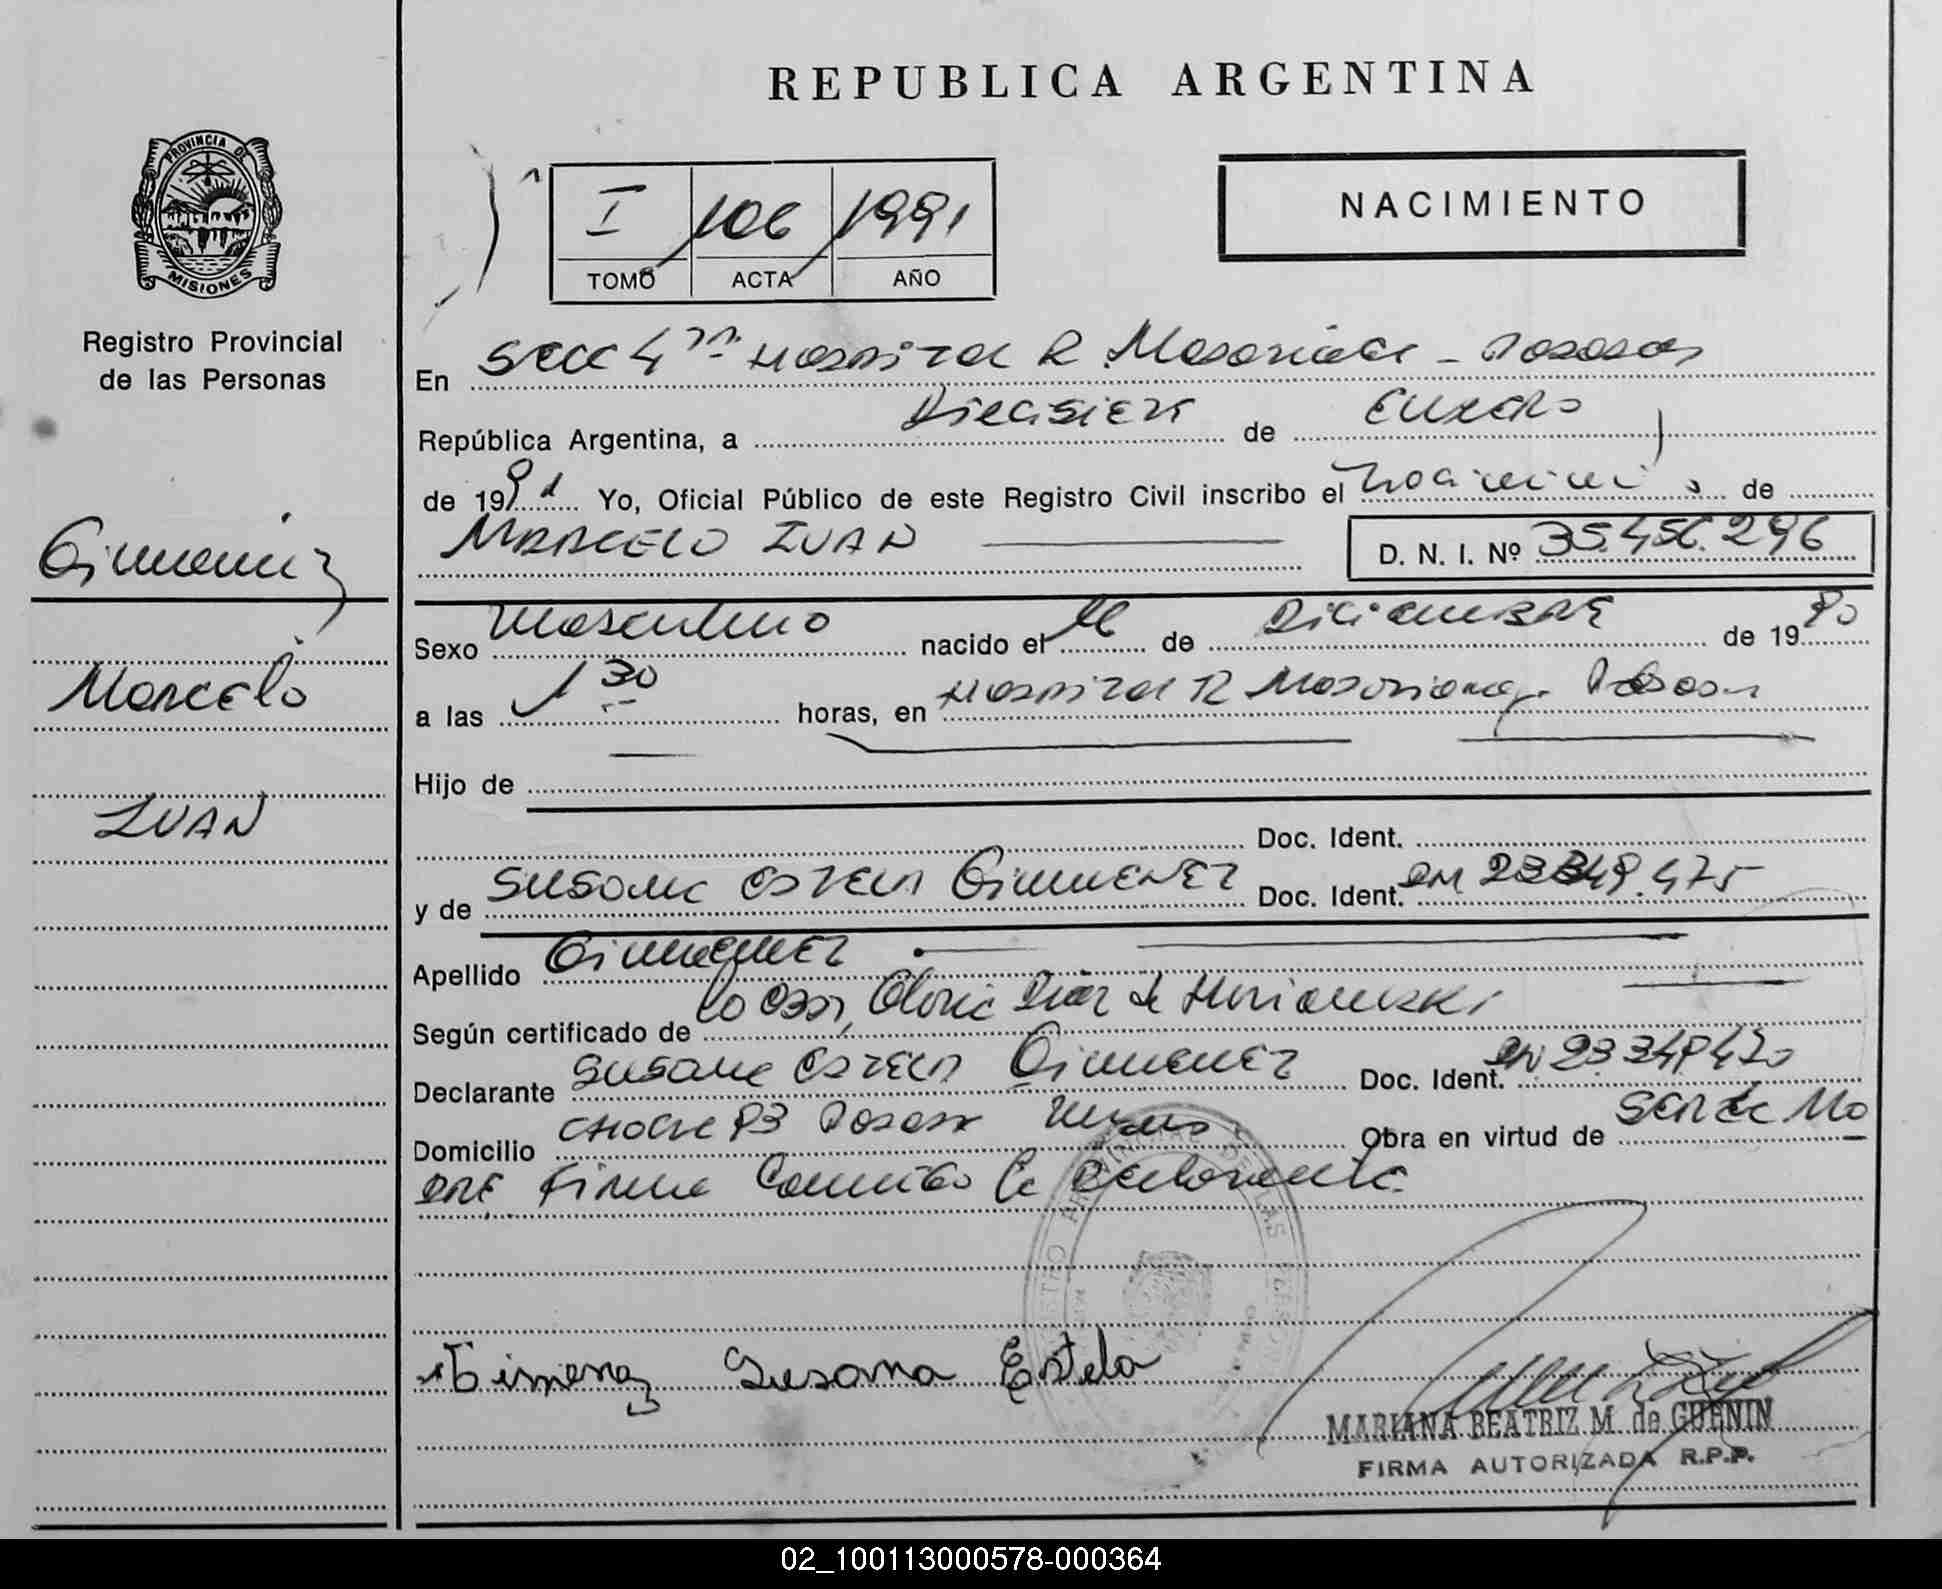 REPUBLICA ARGENTINA
PROVINCIA DE
MISIONES
Registro Provincial
de las Personas
I 106 1991
TOMO ACTA AÑO
NACIMIENTO
En Secc 4ta Hospital R. Madariaga - Posadas
República Argentina, a Diecisiete de Enero
de 1991 Yo, Oficial Público de este Registro Civil inscribo el nacimiento de
MARCELO IVAN D. N. I. Nº 35.456.296
Gimenez
Marcelo
IVAN
Sexo Masculino nacido el 16 de Diciembre de 1990
a las 1 30 horas, en Hospital R Madariaga - Posadas
Hijo de
Doc. Ident.
y de Susana Estela Gimenez Doc. Ident. 475
Apellido Gimenez
Según certificado de la Obst, Gloria Diaz de
Declarante Susana Estela Gimenez Doc. Ident.
Domicilio Posadas Obra en virtud de ser la Ma
dre firma conmigo la declarante
Gimenez Susana Estela
MARIANA BEATRIZ M. de GUENIN
FIRMA AUTORIZADA R.P.P.
02_100113000578-000364